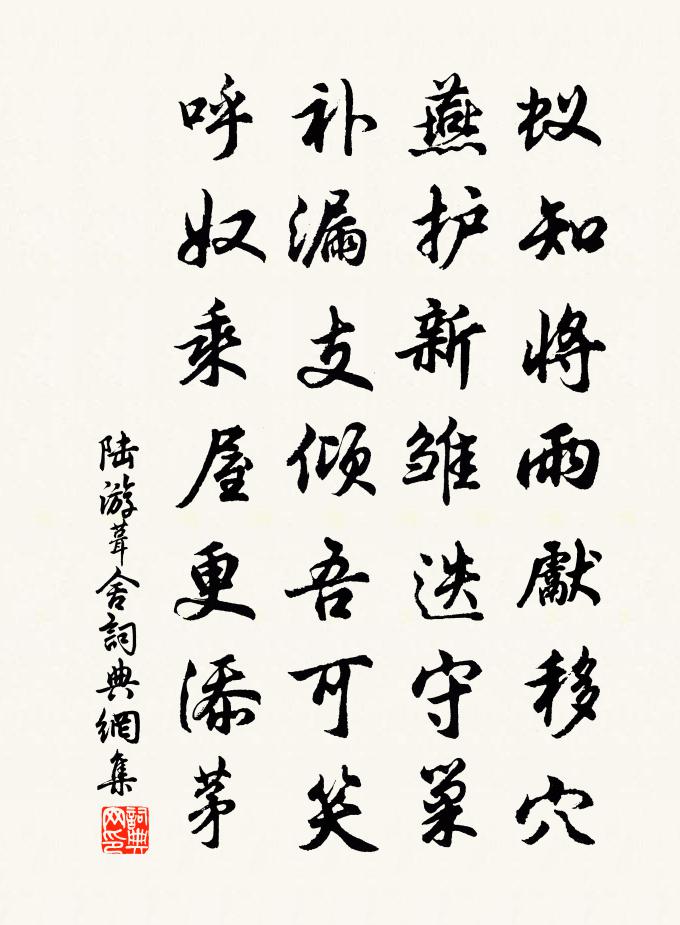 蚁知将雨獻移穴
燕护新雏迭守巢
补漏支倾吾可笑
呼奴乘屋更添茅
陆游葺舍詞典網集
詞典网印